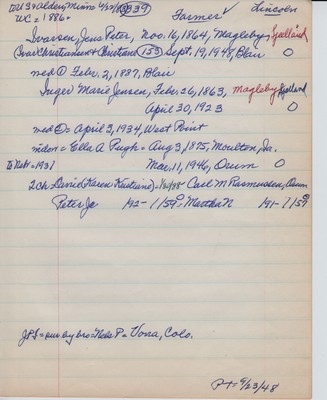 to U.S = Alden, Minn 4/ 839 Farmer ✓ Lincoln
WC = 1886.
Ivarsen, Jens Peter, Nov. 16, 1864, Magleby, Sjælland
(Ivar Christiansen + Christiane (153) Sept. 19, 1948, Blair O
med ① Febr. 2, 1887, Blair
Inger Marie Jensen, Febr. 26, 1863, Magleby Sjælland
April 30, 1923 O
med ② = April 3, 1934, West Point
mdsn = Ella A Pugh = Aug 3, 1875, Moulton, Ia.
to Nebr = 1931 Mar. 11, 1946, Orum O
2 ch = David (Karen Kristiane) = Carl M Rasmussen, Orum
Peter Jr 192 - 1/59 = Martha N 191 - 1/59
JPI = sur by bro = Nels P = Vona, Colo.
P+ = 9/23/48